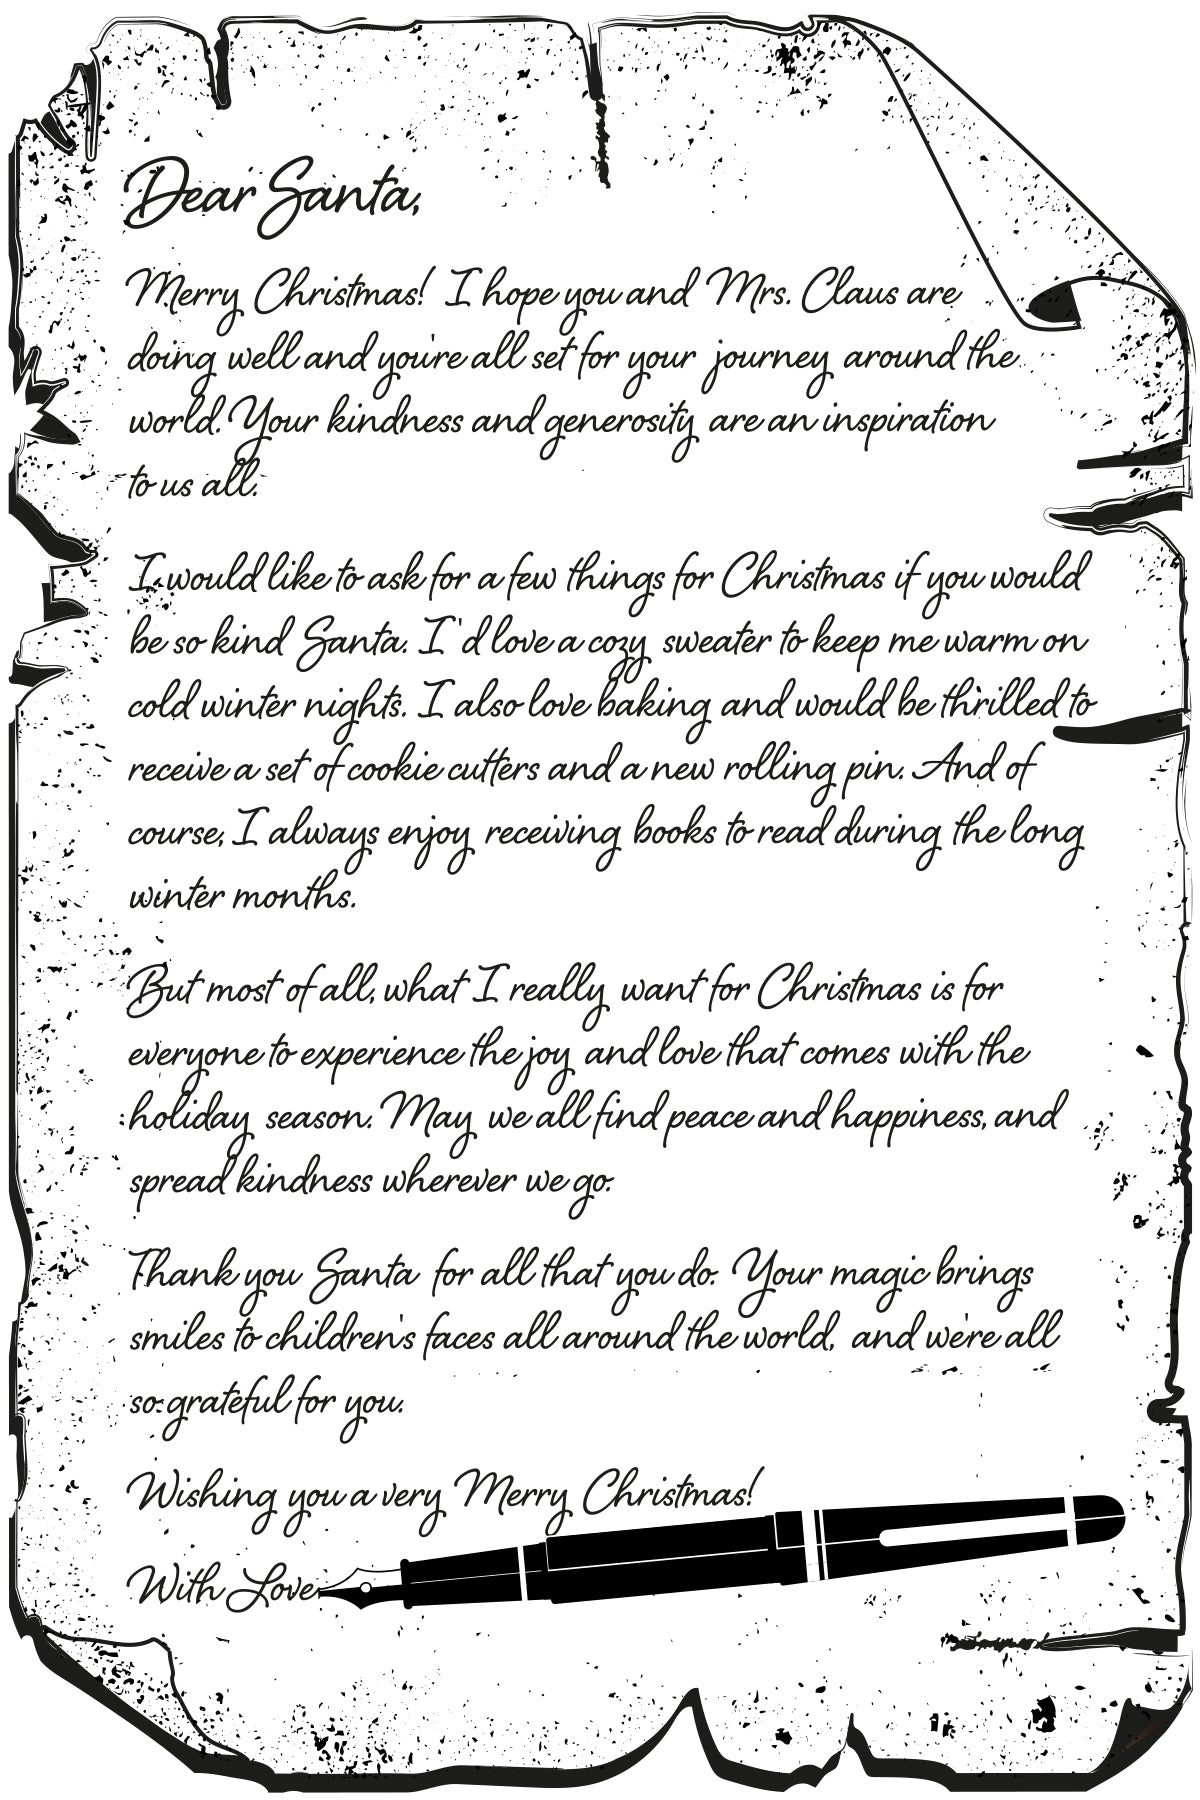 Dear Santa,
Merry Christmas! I hope you and Mrs. Claus are
doing well and you're all set for your journey around the
world. Your kindness and generosity are an inspiration
to us all.
I would like to ask for a few things for Christmas if you would
be so kind Santa. I'd love a cozy sweater to keep me warm on
cold winter nights. I also love baking and would be thrilled to
receive a set of cookie cutters and a new rolling pin. And of
course, I always enjoy receiving books to read during the long
winter months.
But most of all, what I really want for Christmas is for
everyone to experience the joy and love that comes with the
holiday season. May we all find peace and happiness, and
spread kindness wherever we go.
Thank you Santa for all that you do. Your magic brings
smiles to children's faces all around the world, and we're all
so grateful for you.
Wishing you a very Merry Christmas!
With Love